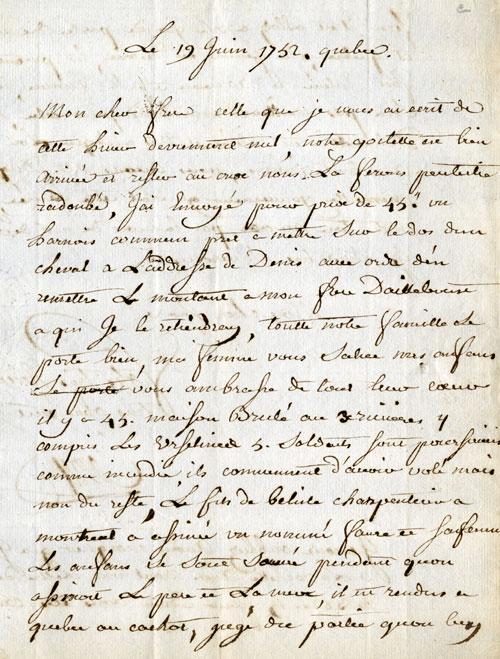 Le 19 Juin 1752. quebec.
Mon cher frere celle que je vous ai ecrit de
cette hiver notre goelette est bien
arrivée et restée au croc nous La ferons peutestre
radoubé, Jai Envoyé pour prix de 45# un
harnois commun pret a mettre Sur le dos dun
cheval a L'addresse de Denis avec ordre den
remettre Le montant a mon frere
a qui Je le retiendray, toutte notre famille Se
porte bien, ma femme vous Salue mes anfans
Se porte vous ambrasse de tout leur coeur
il y a 45. maison Brulé au 3 rivieres y
compris Les Urselines 5. Soldats sont poursuivis
comme incendie, ils conviennent d'avoir volé mais
non du reste, Le fils de belisle charpentier a
montreal a assiné un nommé faure et sa femme
Les anfans se sont Sauvé pendant quon
assinoit Le pere et La mere, il est rendus a
quebec au cachot, partie quon luy